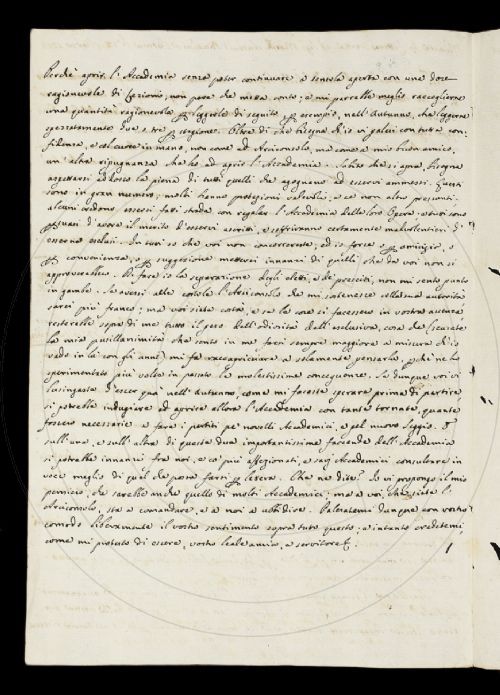 Perchè aprir l'Accademia senza poter continuare a tenerla aperta con una dose
ragionevole di Lezioni, non pare che metta conto; e mi parrebbe meglio raccoglierne
una quantità ragionevole per leggerle di seguito per esempio, nell'Autunno, che leggerne
spezzatamente due o tre per stagione. Oltre di che bisogna ch'io vi palesi con tutta con-
fidenza, e col cuore in mano, non come ad Arciconsolo, ma come a mio buon amico,
un'altra ripugnanza che ho ad aprir l'Accademia. Subito che si apra bisogna
aspettarsi addosso la piena di tutti quelli che agognano ad esservi ammessi. Questi
sono in gran numero; molti hanno protezioni valevoli, e ce non altro presunti.
alcuni credono essersi fatti strada con regalar l'Accademia delle loro Opere, e tutti sono
persuasi d'avere il merito d'esservi ascritti, e soffriranno certamente malvolentieri d'
esserne esclusi. In tutti so che voi non concorrerete; ed io forse o per amicizia, o
per convenienza, o per suggezione metterei innanzi di quelli che da voi non si
approverebbero. Di fare io la separazione degli eletti, e de' presciti, non mi sento punto
in gambe. Se avessi alle costole l'Arciconsolo che mi sostenesse colla sua autorità
sarei più franco; ma voi siete costà, e se la cosa si facesse in vostra assenza
resterebbe sopra di me tutto il peso dell'odiosità dell'esclusiva, cosa che
la mia pusillanimità che sento in me farsi sempre maggiore a misura ch'io
vado in là con gli anni mi fa raccapricciare a solamente pensarlo, perchè ne ho
sperimentato più volte in passato le molestissime conseguenze. Se dunque voi vi
lusingaste d'esser qua nell'Autunno, come mi faceste sperare prima di partire
si potrebbe indugiare ad aprire allora l'Accademia con tante tornate, quante
fossero necessarie a fare i partiti pe' novelli Accademici, e pel nuovo Seggio. E
sull'una, e sull'altra di queste due importantissime faccende dell'Accademia
si potrebbe innanzi fra noi, e co' più affezionati, e savj Accademici consultare in
voce meglio di quel che possa farsi per lettera. Che ne dite? Io vi propongo il mio
pensiero, che sarebbe anche quello di molti Accademici; ma a voi, che siete l'
Arciconsolo, sta a comandare, e a noi a ubbidire. Palesatemi dunque con vostro
comodo liberamente il vostro sentimento sopra tutto questo; e intanto credetemi,
come mi protesto di essere, vostro leale amico, e servitore